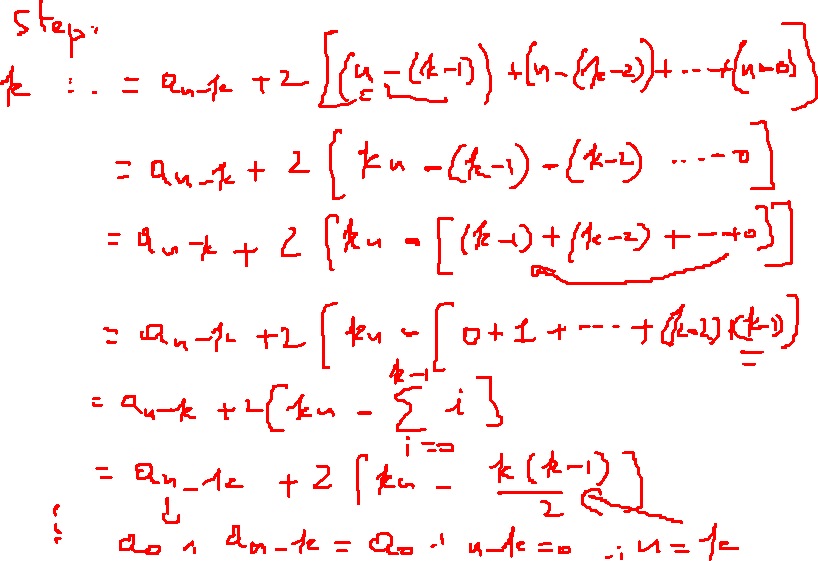 step:
k : . = a_{n-k} + 2 [(n-(k-1)) + (n-(k-2)) + ... + (n-0)]
= a_{n-k} + 2 [kn - (k-1) - (k-2) ... - 0]
= a_{n-k} + 2 [kn - [(k-1) + (k-2) + ... + 0]]
= a_{n-k} + 2 [kn - [0 + 1 + ... + (k-2) + (k-1)]
= a_{n-k} + 2 [kn - \sum_{i=0}^{k-1} i]
= a_{n-k} + 2 [kn - \frac{k(k-1)}{2}]
a_0 , a_{n-k} = a_0 ; n-k=0 ; n=k